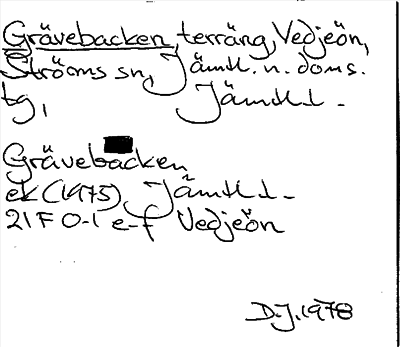 Grävebacken, terräng, Vedjeön,
Ströoms sn, Jämtl. n. doms.
tg, Jämtl. l.
Grävebacken
ek (1975) Jämtl. l.
21 F 0-1 e-f Vedjeön
D.J. 1978